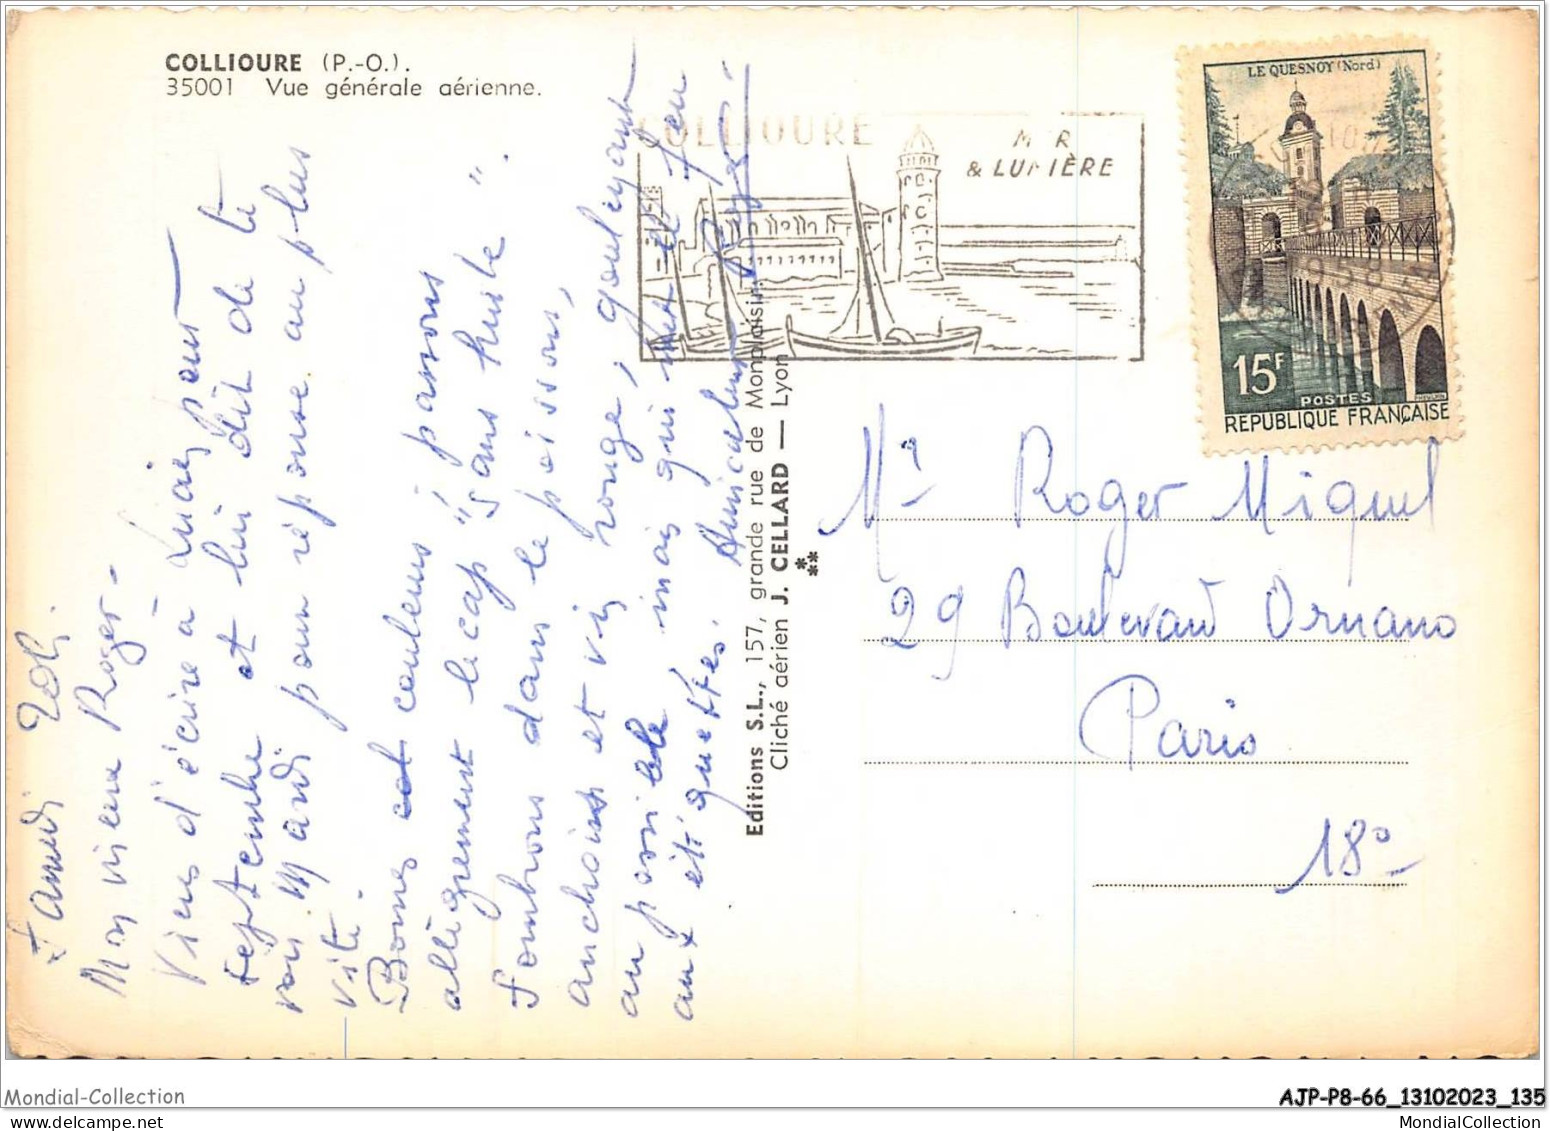 COLLIOURE (P.-O.).
35001 Vue générale aérienne.
COLLIOURE
MER
& LUMIÈRE
LE QUESNOY (Nord)
15F
POSTES
REPUBLIQUE FRANÇAISE
Samedi
Mon vieux Roger -
Viens d'écrire à pour
septembre et lui dit de te
voir Mardi pour réponse au plus
vite.
Bonnes couleurs, passons
allègrement le cap "sans huile".
Tombons dans le poisson,
anchois et vin rouge,
au possible mais qui met le feu
aux étiquettes. Amicalement
Editions S.L., 157, grande rue de Monplaisir
Cliché aérien J. CELLARD — Lyon
Mr Roger Miquel
29 Boulevard Ornano
Paris
18°
Mondial-Collection
AJP-P8-66_13102023_135
MondialCollection